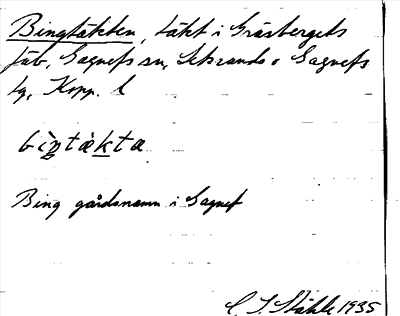 Bingtäkten, täkt i Gräsbergets
fäb., Gagnefs sn, Leksands o Gagnefs
tg, Kopp. l
bìŋtàkta
Bing gårdsnamn i Gagnef
C. I. Ståhle 1935